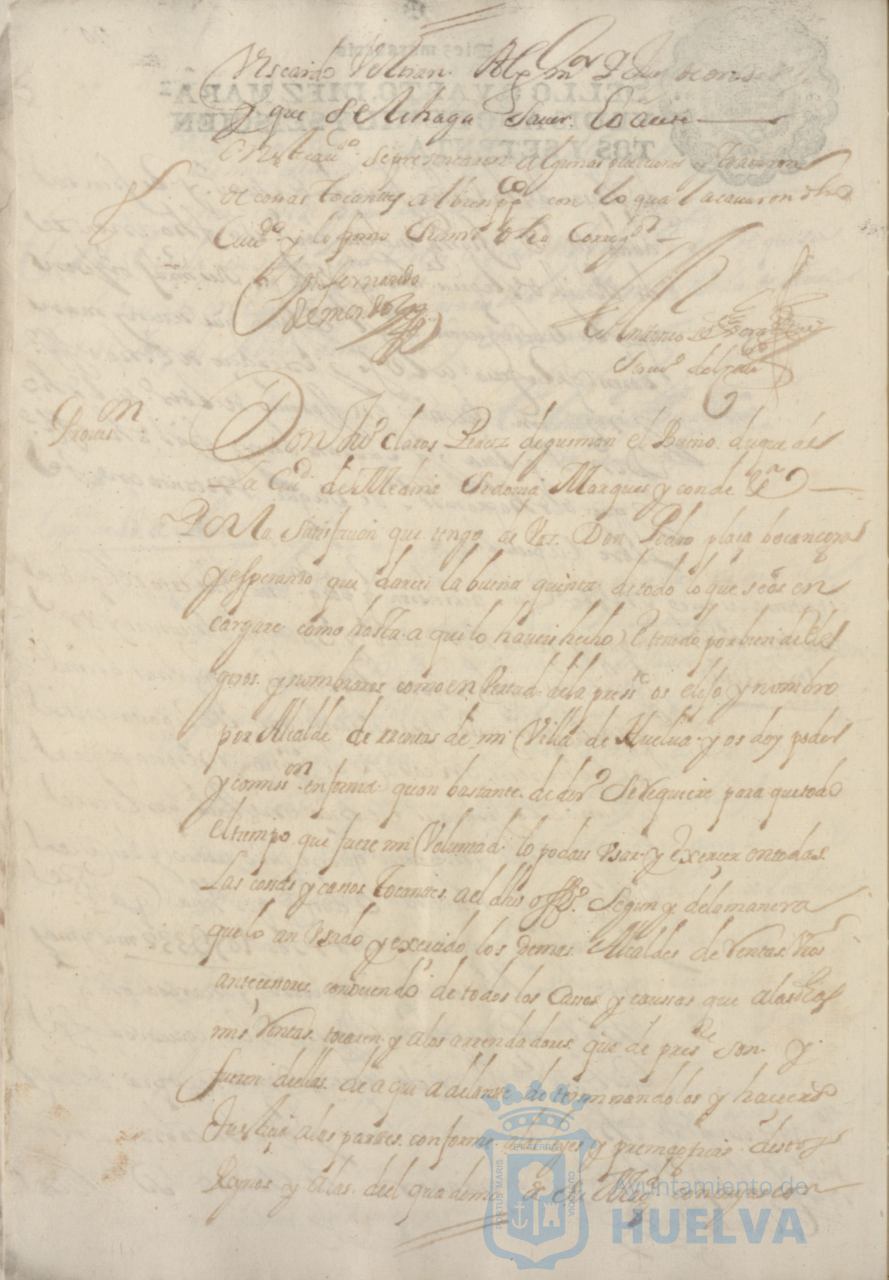 y que se le haga saver.
En este cavdo se presentaron algunas peticiones y trataron
de cossas tocantes al bien pco con lo qual acavaron dho
Cavdo y lo firmo su mrd dho Corregr
Dn fernando
de mendoza
Provisn
Don Juo claros Perez de guzman el Bueno duque de
la Ciud de Medina Sidonia Marques y conde &a
Por la satisfacion que tengo de Vos Don Pedro plaça bocanegra
y esperando que dareis la buena quenta de todo lo que se os en
cargare como hasta aqui lo haveis hecho E tenido por bien de Ele
giros y nombraros como en Virtud de la prests os elijo y nombro
por Alcalde de Rentas de mi Villa de Huelva y os doy poder
y comission en forma quan bastante de dero se requiere para que todo
el tiempo que fuere mi Voluntad lo podais Usar y Exerçer en todas
Las cossas y cassos tocantes a el dho offo Segun y de la manera
que lo an Usado y exercido los demas Alcaldes de Rentas Vros
antecessores conociendo de todos los Cassos y caussas que a las dhas
mis Rentas tocaren y a los arrendadores que de prste son y
fueren dellas de aqui adelante determinandolos y haciendo
Justiçia a las partes conforme a las leyes y prematicas destos
Reynos y a las del quaderno de su Magd con
Ayuntamiento de
HUELVA